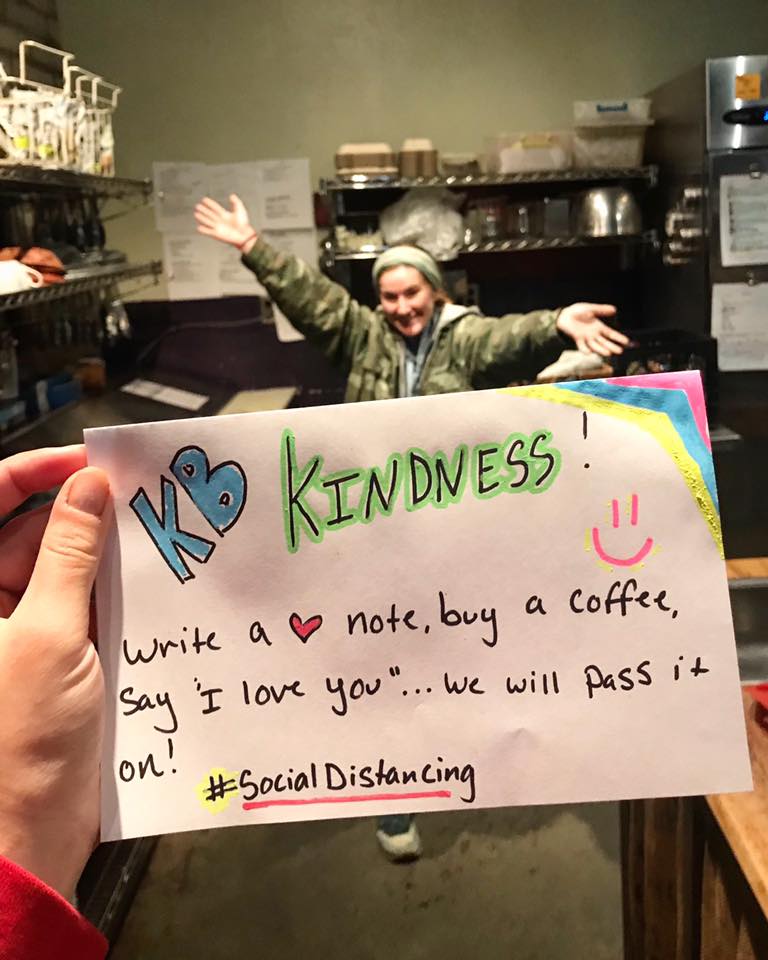 KB KINDNESS!
Write a ♥ note, buy a coffee,
Say "I love you"... we will pass it
on!
#SocialDistancing